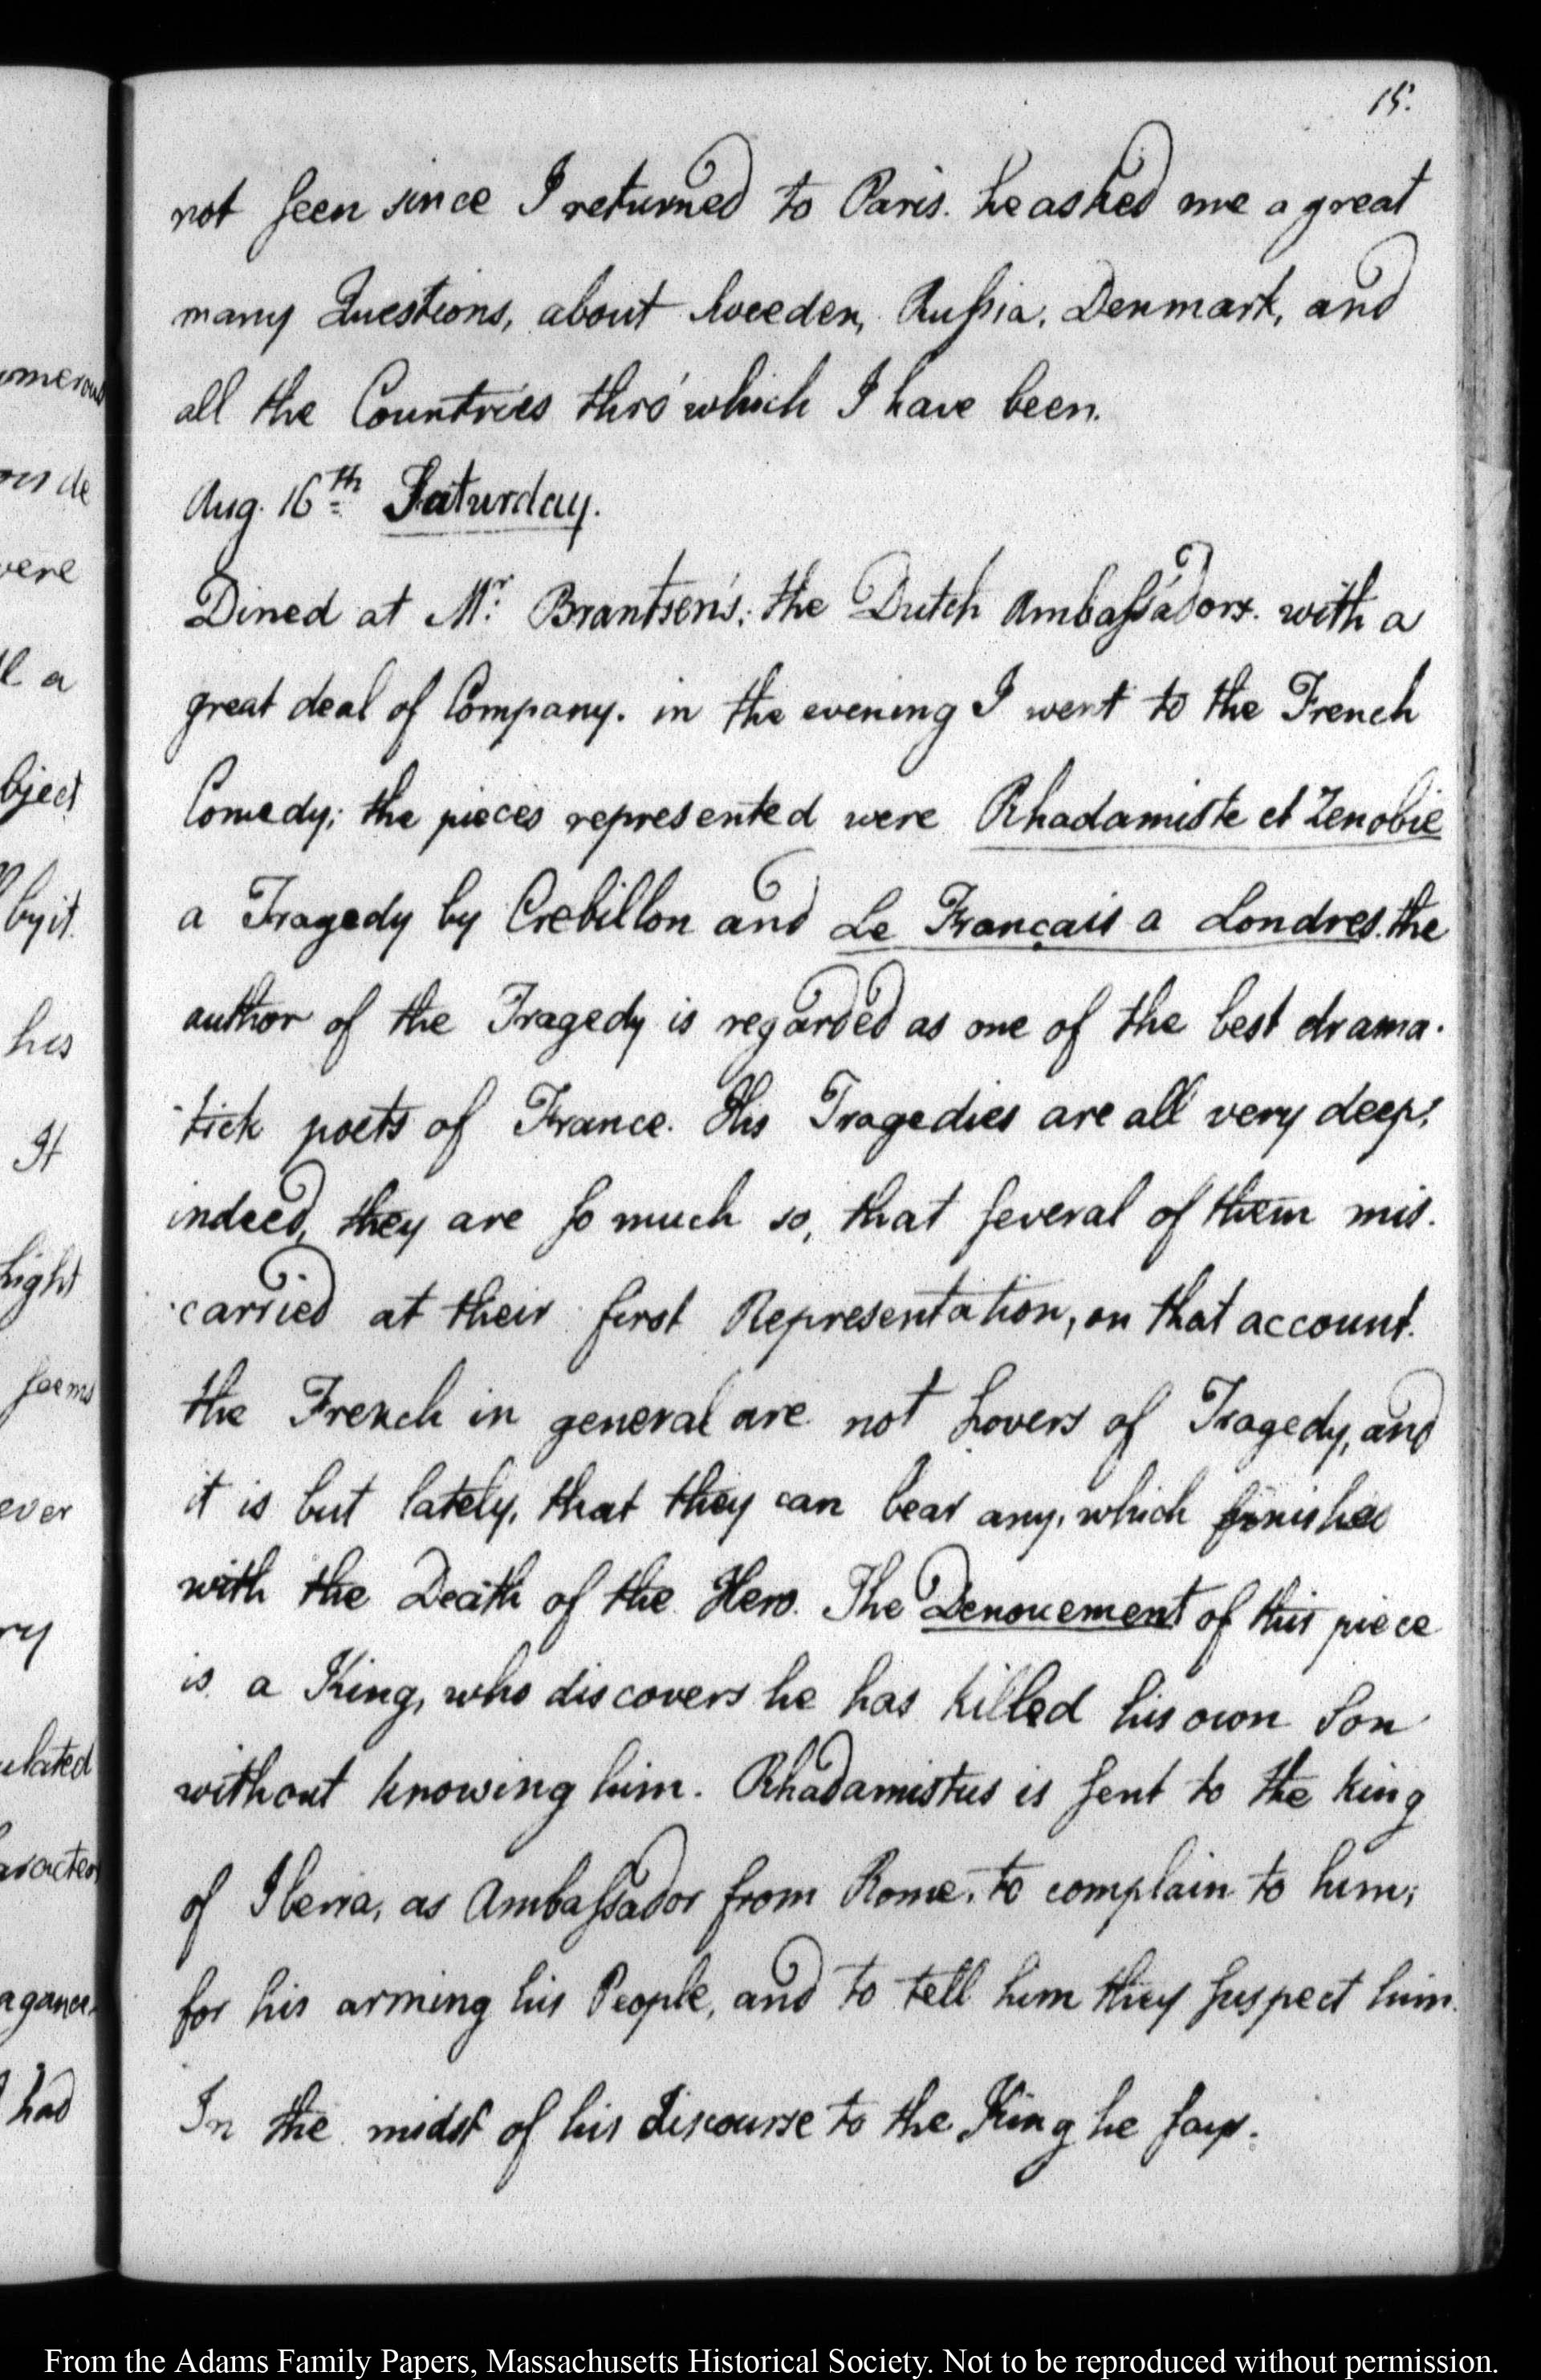 15.
not seen since I returned to Paris. he asked me a great
many Questions, about Sweeden, Russia, Denmark, and
all the Countries thro' which I have been.
Aug. 16th Saturday.
Dined at Mr. Brantsen's; the Dutch Ambassadors. with a
great deal of Company. in the evening I went to the French
Comedy; the pieces represented were Rhadamiste et Zenobie
a Tragedy by Crebillon and Le Français a Londres. the
author of the Tragedy is regarded as one of the best drama-
-tick poets of France. His Tragedies are all very deep;
indeed, they are so much so, that several of them mis-
-carried at their first Representation, on that account.
the French in general are not Lovers of Tragedy, and
it is but lately, that they can bear any, which finishes
with the Death of the Hero. The Denouement of this piece
is a King, who discovers he has killed his own Son
without knowing him. Rhadamistus is sent to the King
of Iberia, as Ambassador from Rome, to complain to him;
for his arming his People, and to tell him they suspect him.
In the midst of his discourse to the King he says.
umerous
ous de
were
l a
bject
by it.
his
It
light
seems
ever
ry
ulated
aracters
agance
had
From the Adams Family Papers, Massachusetts Historical Society. Not to be reproduced without permission.